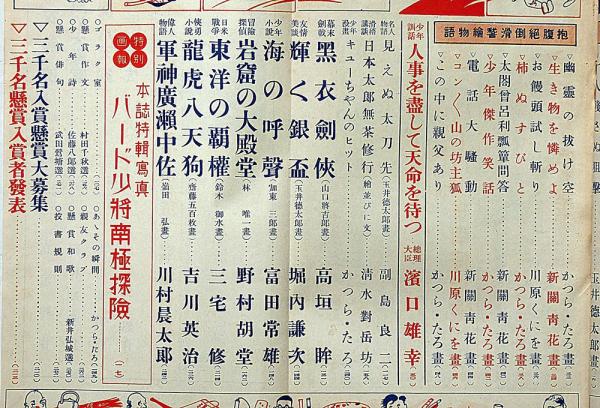 抱腹絕倒滑稽繪物語
玉井德太郎畫
幽靈の拔け空 かつら・たろ畫
生き物を憐めよ 新關靑花畫
お饅頭試し斬り 川原くにを畫
柿ぬすびと かつら・たろ畫
太閤曾呂利瓢簞問答 新關靑花畫
少年傑作笑話 かつら・たろ畫
電話大騷動 新關靑花畫
コックく山の坊主狐 川原くにを畫
この中に親父あり かつら・たろ畫
少年訓話 人事を盡して天命を待つ 總理大臣 濱口雄幸
名人物語 見えぬ太刀先 (玉井德太郎畫) 副島良二
滑稽講談 日本太郎無茶修行 (繪並びに文) 淸水對岳坊
少年漫畫 キューちやんのヒット かつら・たろ
幕末劍戟 黑衣劍俠 (山口將吉郎畫) 高垣眸
友情美談 輝く銀盃 (玉井德太郎畫) 堀內謙次
少年小說 海の呼聲 (加東三郎畫) 富田常雄
冒險探偵 岩窟の大殿堂 (林唯一畫) 野村胡堂
日米水戰 東洋の覇權 (鈴木御水畫) 三宅修
俠勇少年 龍虎八天狗 (齋藤五百枝畫) 吉川英治
偉人物語 軍神廣瀨中佐 (嶺田弘畫) 川村晨太郎
特別畫報 本誌特輯寫眞 バード少將南極探險
○ゴラク室
○あゝその瞬間 かつら・たろ
○懸賞作文 村田千秋選
○親友クラブ
○少年詩 佐藤八郎選
○懸賞和歌 新井弘城選
○懸賞俳句 武田鶯塘選
○投書規則
▽三千名入賞懸賞大募集
▽三千名懸賞入賞者發表